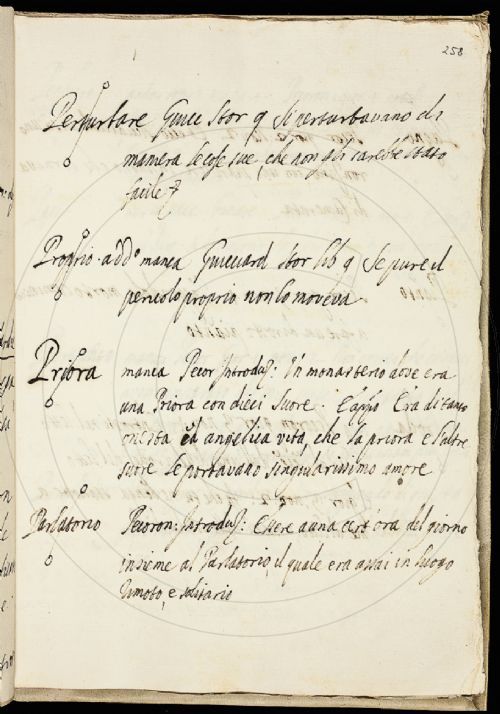 258
Perturbare Guicc stor 9 si perturbavano di
maniera le cose sue, che non gli sarebbe stato
facile
Proprio. add.o manca Guicciard stor lib 9 Se pure il
pericolo proprio non lo moveva
Priora manca Pecor Introduz: In monasterio dove era
una Priora con dieci Suore. E appo Era di tanto
onesta ed angelica vita, che la priora e l'altre
suore le portavano singularissimo amore
Parlatorio Pecoron: Introduz: Essere a una cert'ora del giorno
insieme al Parlatorio, il quale era assai in luogo
rimoto, e solitario